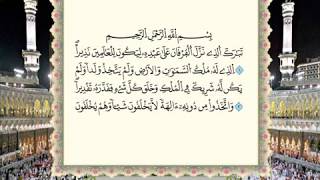 بِسْمِ اللَّهِ الرَّحْمَٰنِ الرَّحِيمِ
تَبَارَكَ الَّذِي نَزَّلَ الْفُرْقَانَ عَلَىٰ عَبْدِهِ لِيَكُونَ لِلْعَالَمِينَ نَذِيرًا
الَّذِي لَهُ مُلْكُ السَّمَٰوَٰتِ وَالْأَرْضِ وَلَمْ يَتَّخِذْ وَلَدًا وَلَمْ
يَكُن لَّهُ شَرِيكٌ فِي الْمُلْكِ وَخَلَقَ كُلَّ شَيْءٍ فَقَدَّرَهُ تَقْدِيرًا
وَاتَّخَذُوا مِن دُونِهِ ءَالِهَةً لَّا يَخْلُقُونَ شَيْئًا وَهُمْ يُخْلَقُونَ